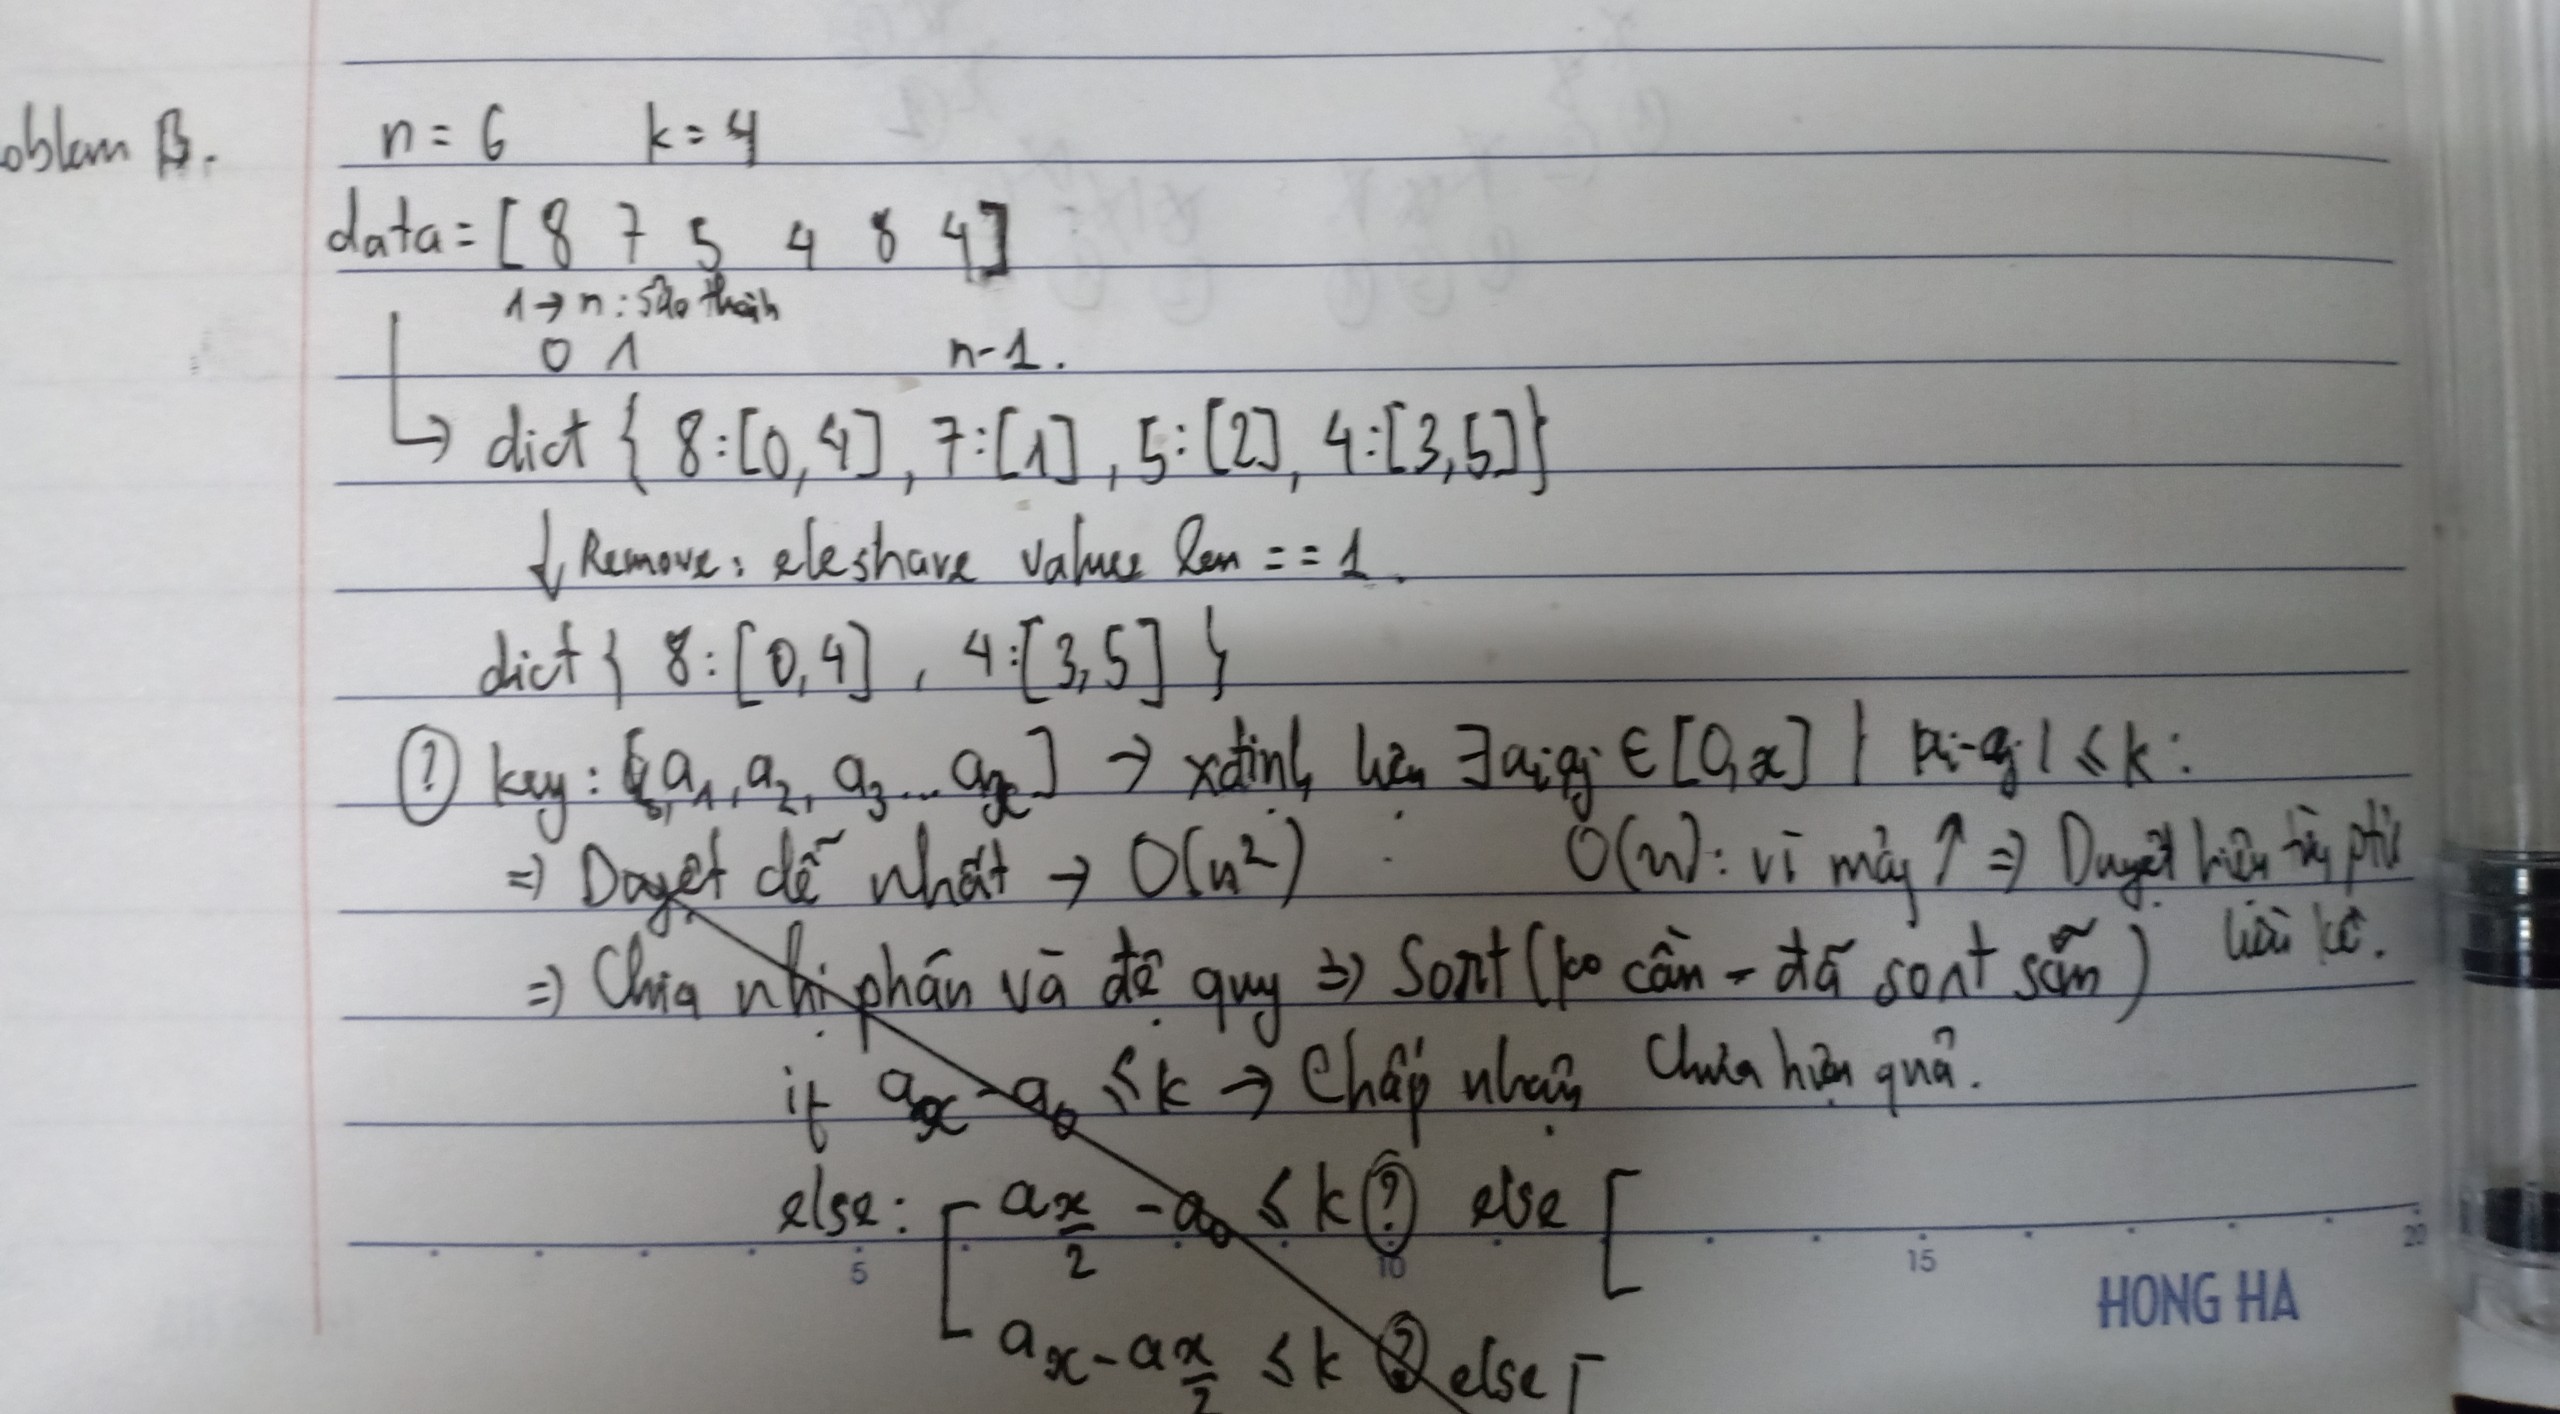 oblem B.
n = 6 k = 4
data = [ 8 7 5 4 8 4 ]
1 → n : sao thành
0 1 n-1.
↳ dict { 8:[0,4], 7:[1], 5:[2], 4:[3,5] }
↓ Remove: ele share value len == 1.
dict { 8:[0,4], 4:[3,5] }
? key: [a₁, a₂, a₃ ... aₓ] → xđịnh ∃ aᵢ aⱼ ∈ [0,x] | |aᵢ-aⱼ| ≤ k :
⇒ Duyệt dễ nhất → O(n²) : O(n): vì mảng ↑ ⇒ Duyệt hiệu
liền kề.
⇒ Chia nhị phân và đệ quy ⇒ Sort (ko cần - đã sort sẵn)
if aₓ - a₀ ≤ k → Chấp nhận Chưa hiệu quả.
else: [ a x/2 - a₀ ≤ k ? else [
5 10 15 20
HONG HA
aₓ - a x/2 ≤ k ? else [